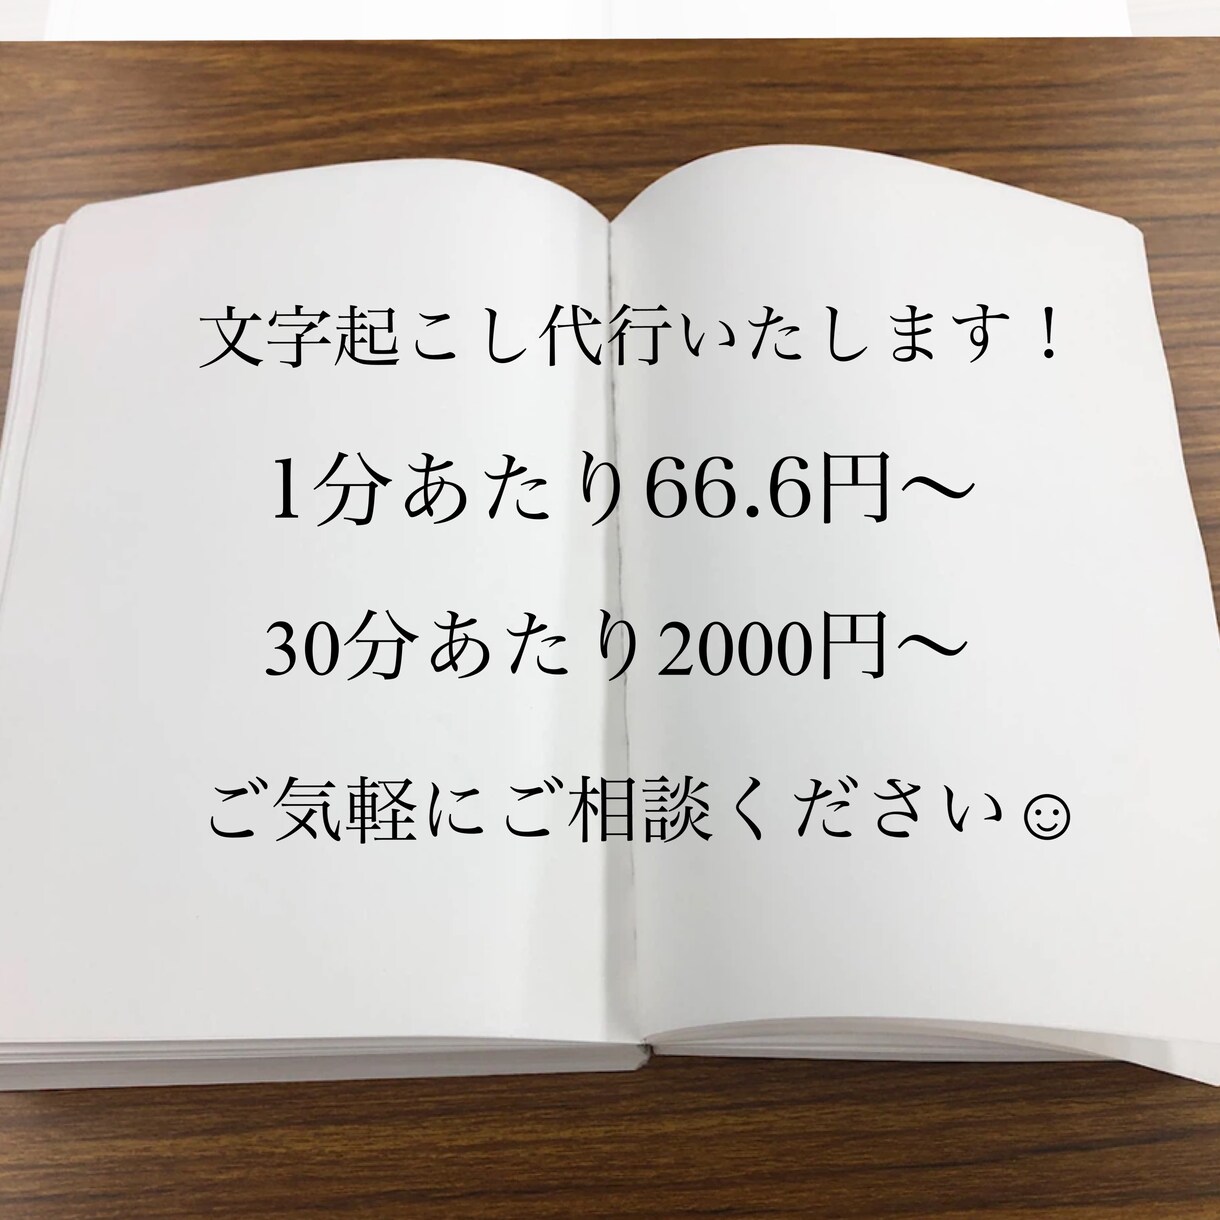 文字起こし代行いたします！
1分あたり66.6円～
30分あたり2000円～
ご気軽にご相談ください☺